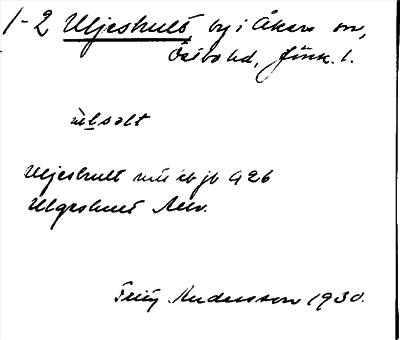 1-2 Uljeshult, by i Åkers sn,
Östbo hd, Jönk. l.
ulsolt
Uljeshult jb 426
Ulgeshult
Andersson 1930.